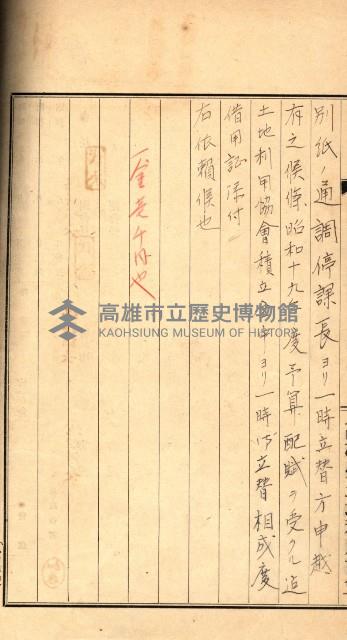 別紙ノ通調停課長ヨリ一時立替方申越
有之候條昭和十九年度予算配賦ヲ受クル迄
土地利用協會積立金中ヨリ一時御立替相成度
借用証添付
右依頼候也
一金壱千円也
高雄市立歷史博物館
KAOHSIUNG MUSEUM OF HISTORY